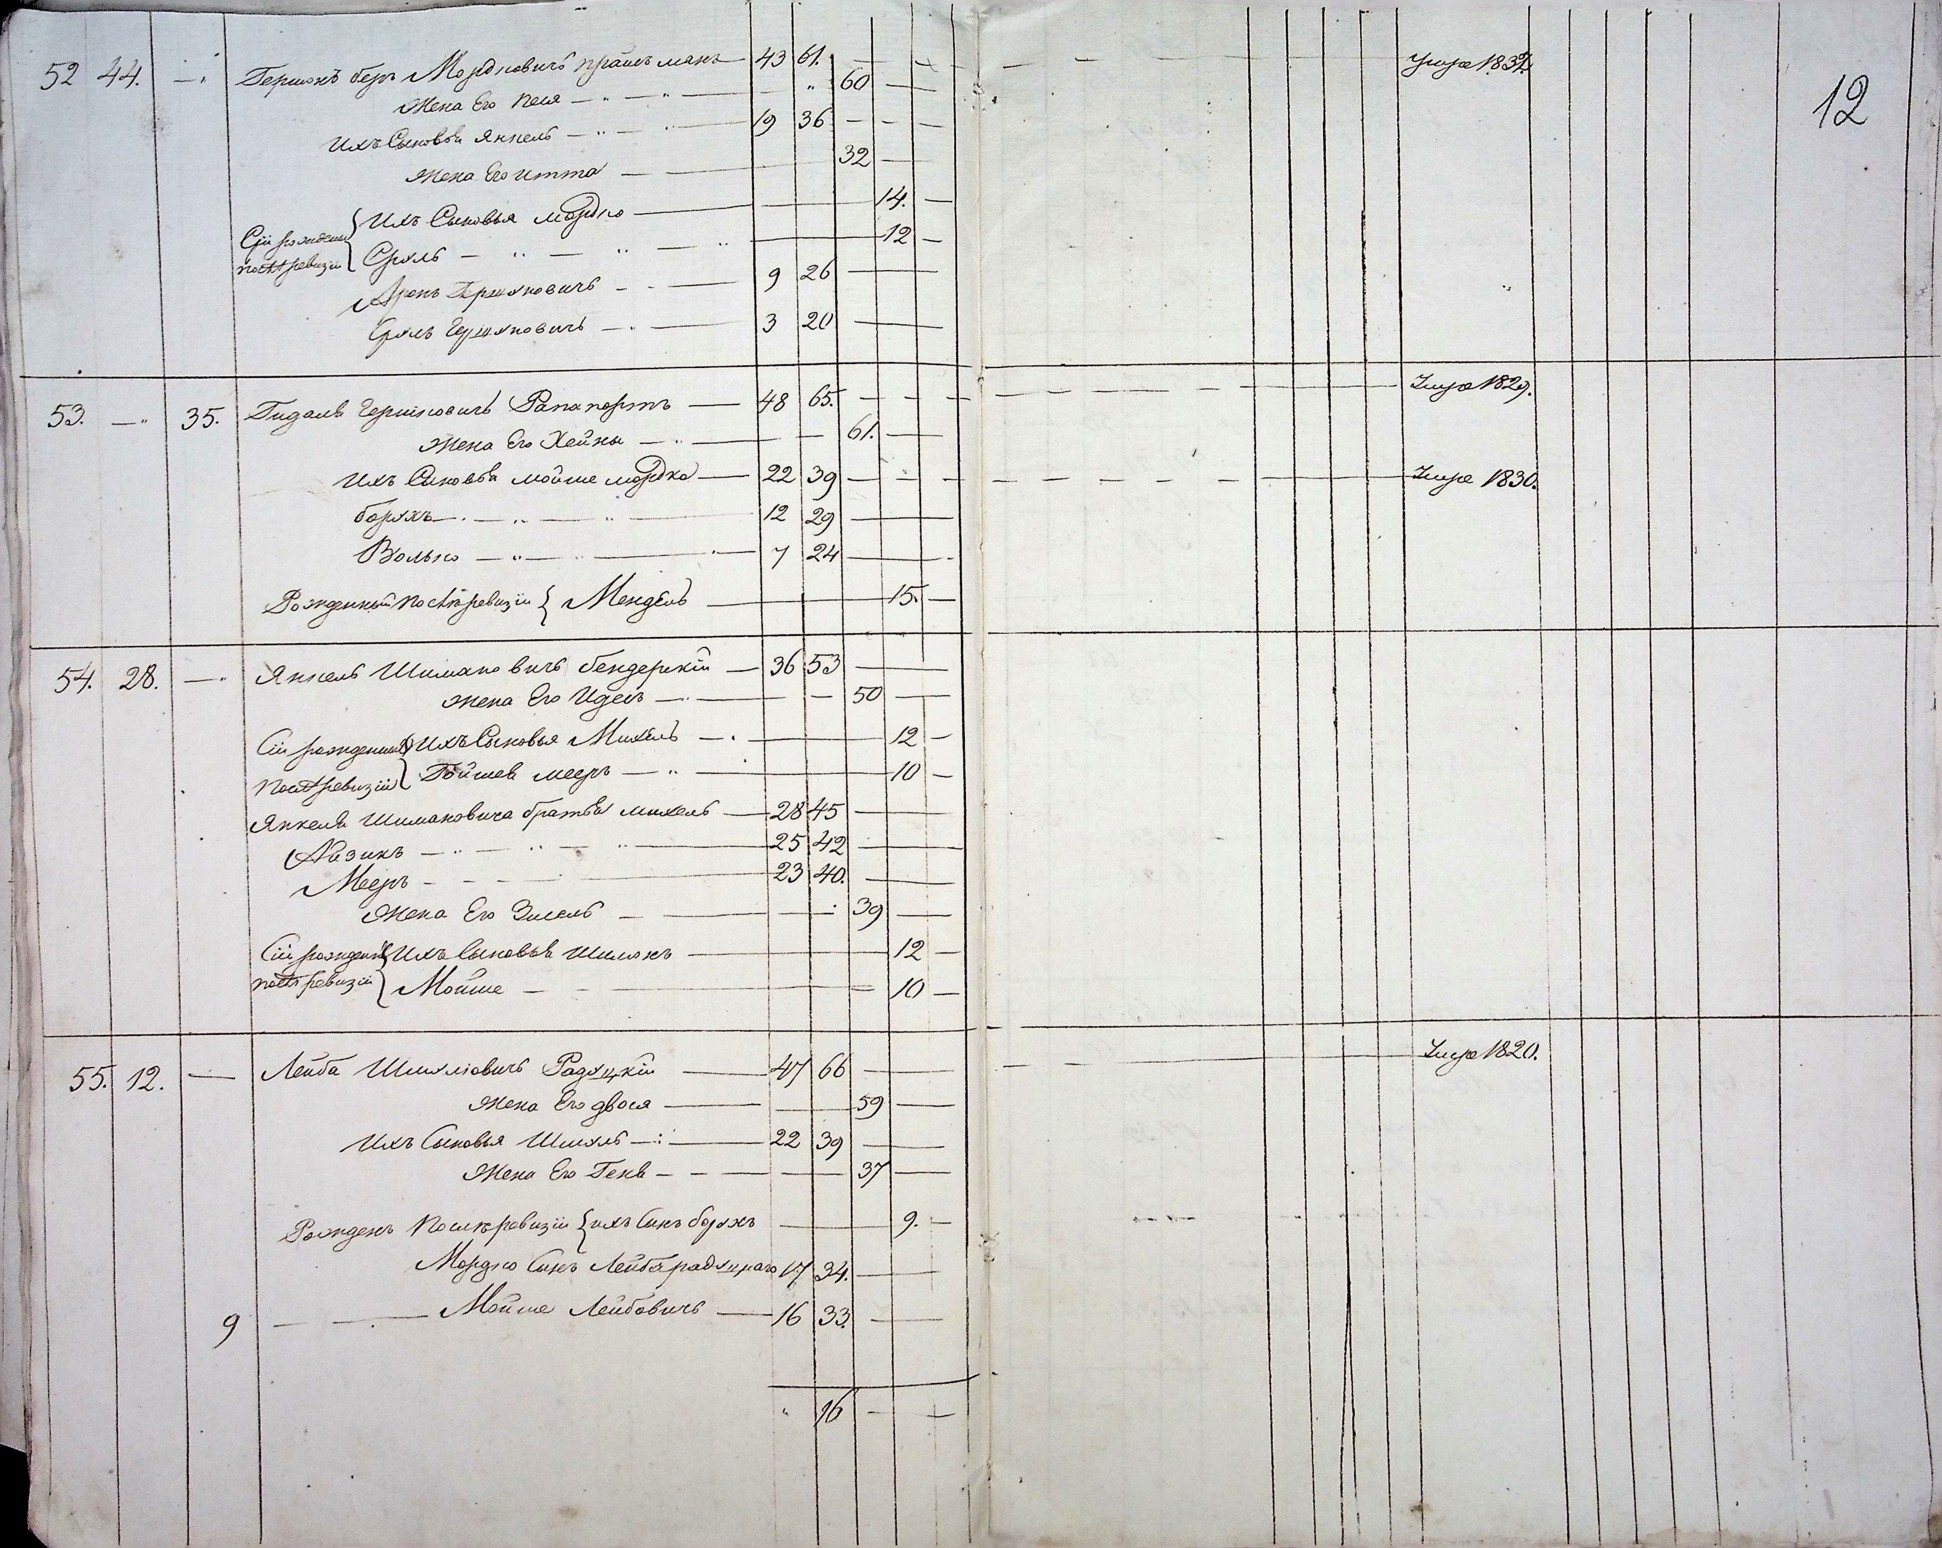 52 44. — Гершонъ беръ Мордковичъ — 43 61. — — умре 1832. 12
жена Его Песя — 60 —
Ихъ Сыновья Янкель — 19 36 — —
жена Его итта — 32 —
Ихъ Сыновья мордко — 14. —
Сіи рожденны послѣ ревизіи { Сруль — 12 —
Аронъ Гершоновичъ — 9 26 —
Сруль Гершоновичъ — 3 20 —
53. — 35. Гидаль Гершковичъ Рапапортъ — 48 65. — — Умре 1829.
жена Его Хейны — 61. —
Ихъ Сыновья мойше мордко — 22 39 — — Умре 1830.
борухъ — 12 29 —
Волько — 7 24 —
Рожденный послѣ ревизіи { Мендель — 15. —
54. 28. — Янкель Шимановичъ бендерскій — 36 53 —
жена Его Идесъ — 50 —
Сіи рожденны { Ихъ Сыновья Михель — 12 —
послѣ ревизіи мееръ — 10 —
Янкеля Шимановича братья михель — 28 45 —
Айзикъ — 25 42 —
Мееръ — 23 40. —
жена Его Зисель — 39 —
Сіи рожденны { Ихъ Сыновья Шимонъ — 12 —
послѣ ревизіи Мойше — 10 —
55. 12. — Лейба Шмулiовичъ Радуцкій — 47 66 — — Умре 1820.
жена Его двося — 59 —
Ихъ Сыновья Шмуль — 22 39 —
жена Его Геня — 37 —
Рожденъ послѣ ревизіи { ихъ Сынъ борухъ — 9. —
Мордко Сынъ Лейбы радуцкаго 17 34. —
9 — Мойше Лейбовичъ — 16 33. —
" 16 — —